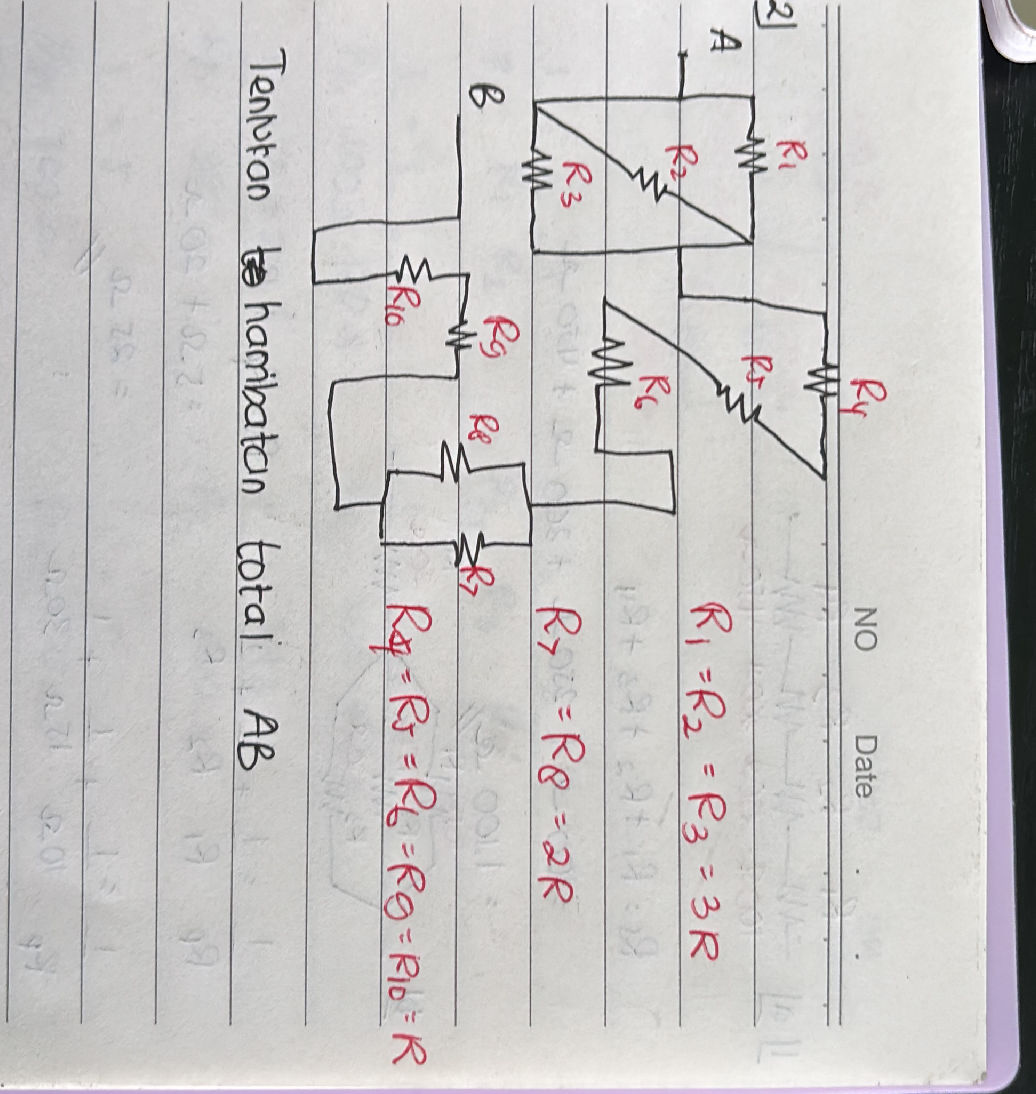 NO Date
2)
A
R1
R2
R3
R4
R5
R6
B
R10
R9
R8
R7
R1 = R2 = R3 = 3R
R7 = R8 = 2R
R4 = R5 = R6 = R9 = R10 = R
Tentukan hambatan total AB